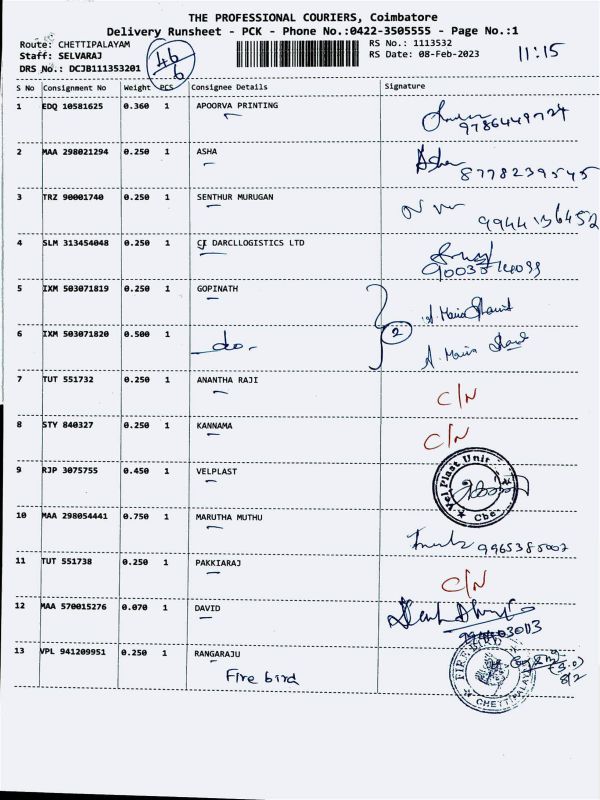 THE PROFESSIONAL COURIERS, Coimbatore
Delivery Runsheet - PCK - Phone No.:0422-3505555 - Page No.:1
Route: CHETTIPALAYAM RS No.: 1113532
Staff: SELVARAJ RS Date: 08-Feb-2023 11:15
DRS No.: DCJB111353201
46
6
S No Consignment No Weight PCS Consignee Details Signature
1 EDQ 10581625 0.360 1 APOORVA PRINTING
9786449724
2 MAA 298021294 0.250 1 ASHA Asha
8778239545
3 TRZ 90001740 0.250 1 SENTHUR MURUGAN
9944136452
4 SLM 313454048 0.250 1 CJ DARCLLOGISTICS LTD
5 IXM 503071819 0.250 1 GOPINATH A. Maria
2
6 IXM 503071820 0.500 1 do. A. Maria
7 TUT 551732 0.250 1 ANANTHA RAJI C/N
8 STY 840327 0.250 1 KANNAMA C/N
9 RJP 3075755 0.450 1 VELPLAST Vel Plast Unit Cbe.
10 MAA 298054441 0.750 1 MARUTHA MUTHU
9965385007
11 TUT 551738 0.250 1 PAKKIARAJ C/N
12 MAA 570015276 0.070 1 DAVID
13 VPL 941209951 0.250 1 RANGARAJU FIRE BIRD
Fire bird CHETTIPALAYAM 8/2